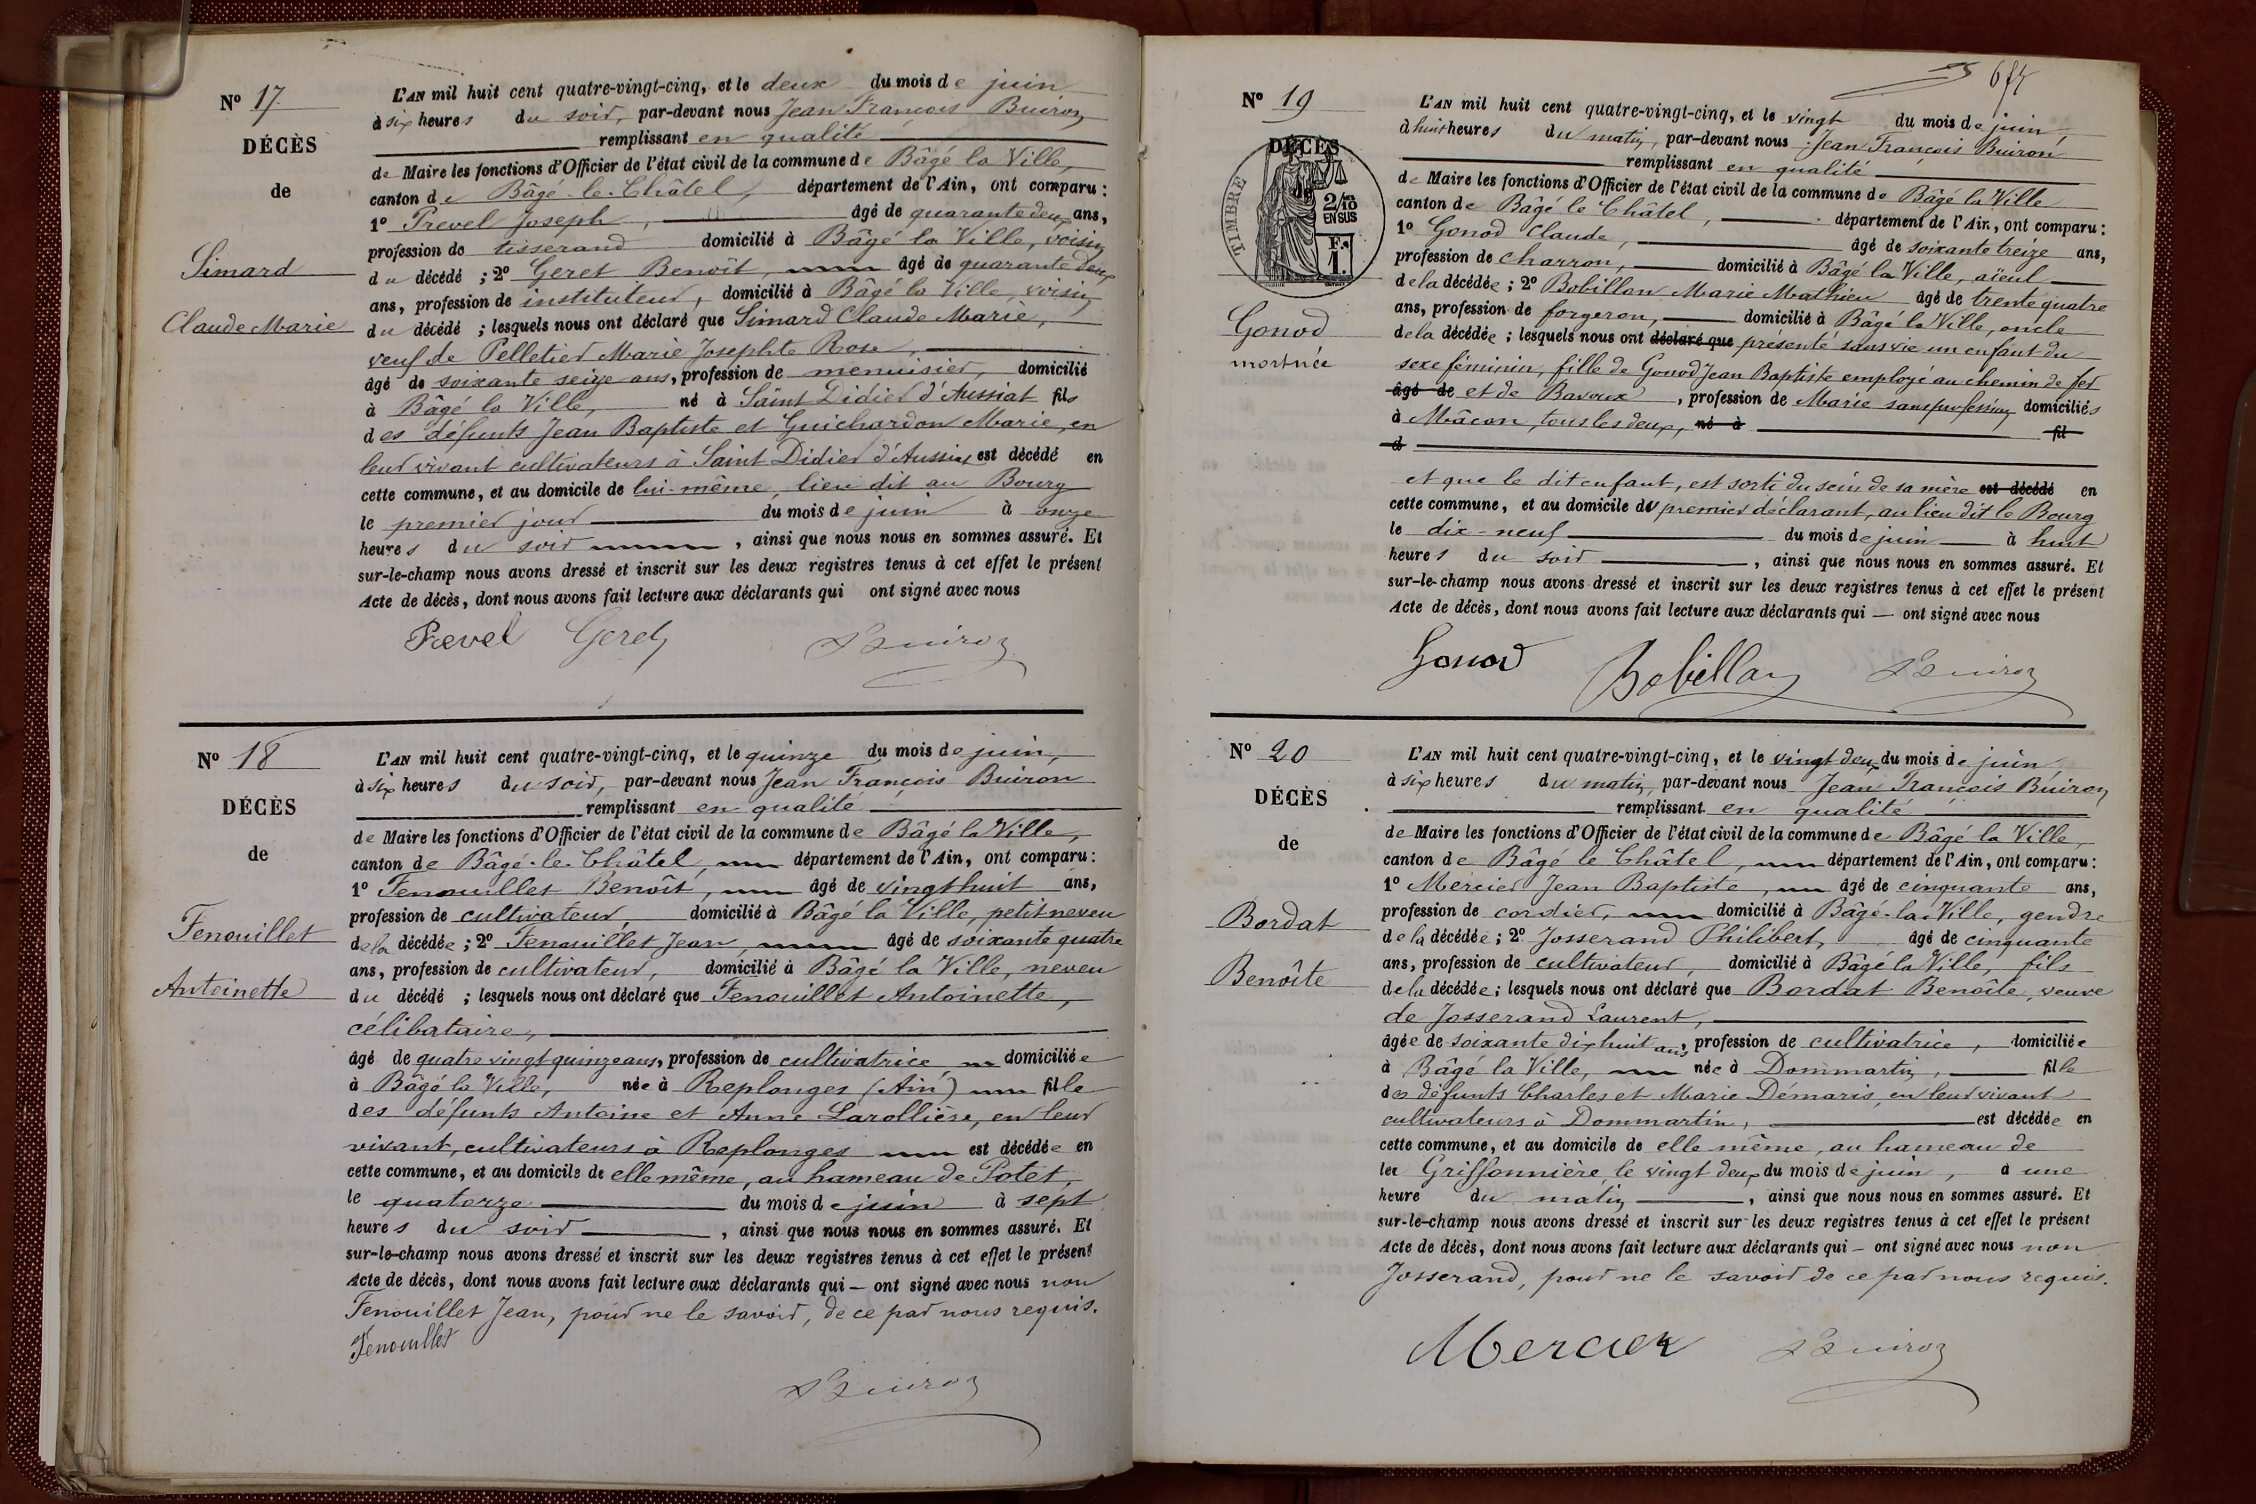 N° 17
DÉCÈS
de
Simard
Claude Marie
L'AN mil huit cent quatre-vingt-cinq, et le deux du mois de juin
à six heures du soir, par-devant nous Jean François Buiron
remplissant en qualité
de Maire les fonctions d'Officier de l'état civil de la commune de Bâgé la Ville,
canton de Bâgé-le-Châtel, département de l'Ain, ont comparu :
1° Prevel Joseph, âgé de quarante deux ans,
profession de tisserand domicilié à Bâgé la Ville, voisin
du décédé ; 2° Geret Benoît, âgé de quarante deux
ans, profession de instituteur, domicilié à Bâgé la Ville, voisin
du décédé ; lesquels nous ont déclaré que Simard Claude Marie,
veuf de Pelletier Marie Josephte Rose,
âgé de soixante seize ans, profession de menuisier, domicilié
à Bâgé la Ville, né à Saint Didier d'Aussiat fils
des défunts Jean Baptiste et Guichardon Marie, en
leur vivant cultivateurs à Saint Didier d'Aussiat est décédé en
cette commune, et au domicile de lui-même, lieu dit au Bourg
le premier jour du mois de juin à onze
heures du soir, ainsi que nous nous en sommes assuré. Et
sur-le-champ nous avons dressé et inscrit sur les deux registres tenus à cet effet le présent
Acte de décès, dont nous avons fait lecture aux déclarants qui ont signé avec nous
Prevel Geret Buiron
N° 18
DÉCÈS
de
Fenouillet
Antoinette
L'AN mil huit cent quatre-vingt-cinq, et le quinze du mois de juin,
à six heures du soir, par-devant nous Jean François Buiron
remplissant en qualité
de Maire les fonctions d'Officier de l'état civil de la commune de Bâgé la Ville,
canton de Bâgé-le-Châtel, département de l'Ain, ont comparu :
1° Fenouillet Benoît, âgé de vingt huit ans,
profession de cultivateur, domicilié à Bâgé la Ville, petit neveu
de la décédée ; 2° Fenouillet Jean, âgé de soixante quatre
ans, profession de cultivateur, domicilié à Bâgé la Ville, neveu
du décédé ; lesquels nous ont déclaré que Fenouillet Antoinette,
célibataire,
âgé de quatre vingt quinze ans, profession de cultivatrice domiciliée
à Bâgé la Ville, née à Replonges (Ain) fille
des défunts Antoine et Anne Larollière, en leur
vivant, cultivateurs à Replonges est décédée en
cette commune, et au domicile de elle même, au hameau de Potet,
le quatorze du mois de juin à sept
heures du soir, ainsi que nous nous en sommes assuré. Et
sur-le-champ nous avons dressé et inscrit sur les deux registres tenus à cet effet le présent
Acte de décès, dont nous avons fait lecture aux déclarants qui – ont signé avec nous non
Fenouillet Jean, pour ne le savoir, de ce par nous requis.
Fenouillet
Buiron
N° 19
DÉCÈS
TIMBRE
2/10
EN SUS
F.
1.
Gonod
mort née
L'AN mil huit cent quatre-vingt-cinq, et le vingt du mois de juin,
à huit heures du matin, par-devant nous Jean François Buiron
remplissant en qualité
de Maire les fonctions d'Officier de l'état civil de la commune de Bâgé la Ville
canton de Bâgé le Châtel, département de l'Ain, ont comparu :
1° Gonod Claude, âgé de soixante treize ans,
profession de charron, domicilié à Bâgé la Ville, aïeul
de la décédée ; 2° Bobillon Marie Mathieu âgé de trente quatre
ans, profession de forgeron, domicilié à Bâgé la Ville, oncle
de la décédée ; lesquels nous ont déclaré que présenté sans vie un enfant du
sexe féminin, fille de Gonod Jean Baptiste employé au chemin de fer
âgé de et de Bavoux, profession de Marie sans profession domiciliés
à Mâcon, tous les deux, né à fil
d
et que le dit enfant, est sorti du sein de sa mère est décédé en
cette commune, et au domicile du premier déclarant, au lieu dit le Bourg
le dix-neuf du mois de juin à huit
heures du soir, ainsi que nous nous en sommes assuré. Et
sur-le-champ nous avons dressé et inscrit sur les deux registres tenus à cet effet le présent
Acte de décès, dont nous avons fait lecture aux déclarants qui — ont signé avec nous
Gonod Bobillon Buiron
N° 20
DÉCÈS
de
Bordat
Benoîte
L'AN mil huit cent quatre-vingt-cinq, et le vingt deux du mois de juin
à six heures du matin, par-devant nous Jean François Buiron
remplissant en qualité
de Maire les fonctions d'Officier de l'état civil de la commune de Bâgé la Ville,
canton de Bâgé le Châtel, département de l'Ain, ont comparu :
1° Mercier Jean Baptiste, âgé de cinquante ans,
profession de cordier, domicilié à Bâgé-la-Ville, gendre
de la décédée ; 2° Josserand Philibert, âgé de cinquante
ans, profession de cultivateur, domicilié à Bâgé la Ville, fils
de la décédée ; lesquels nous ont déclaré que Bordat Benoîte, veuve
de Josserand Laurent,
âgée de soixante dix huit ans, profession de cultivatrice, domiciliée
à Bâgé la Ville, née à Dommartin, fille
des défunts Charles et Marie Démaris, en leur vivant
cultivateurs à Dommartin, est décédée en
cette commune, et au domicile de elle même, au hameau de
la Griffonnière, le vingt deux du mois de juin, à une
heure du matin, ainsi que nous nous en sommes assuré. Et
sur-le-champ nous avons dressé et inscrit sur les deux registres tenus à cet effet le présent
Acte de décès, dont nous avons fait lecture aux déclarants qui – ont signé avec nous non
Josserand, pour ne le savoir de ce par nous requis.
Mercier Buiron